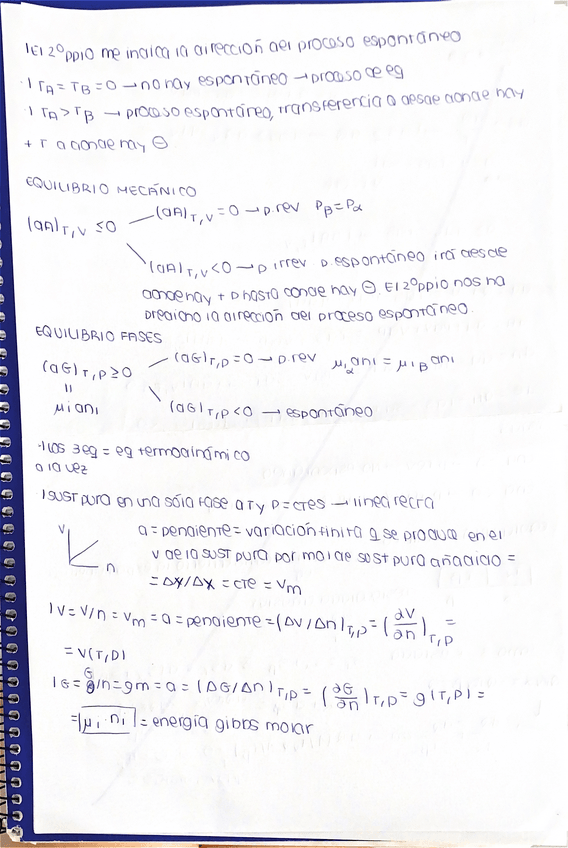 |El 2º ppio me indica la dirección del proceso espontáneo
·| TA = TB = 0 → no hay espontáneo → proceso de eq
·| TA > TB → proceso espontáneo, transferencia Q desde donde hay
+ T a donde hay ⊖
EQUILIBRIO MECÁNICO
(dA)T,V ≤ 0 (dA)T,V = 0 → p. rev Pβ = Pα
(dA)T,V < 0 → p irrev p. espontáneo irá desde
donde hay + p hasta donde hay ⊖. El 2º ppio nos ha
predicho la dirección del proceso espontáneo.
EQUILIBRIO FASES
(dG)T,P ≥ 0 (dG)T,P = 0 → p. rev μiα dni = μiβ dni
||
μi dni (dG)T,P < 0 → espontáneo
·| los 3 eq = eq termodinámico
a la vez
·| sust pura en una sóla fase a T y P = ctes → linea recta
V n a = pendiente = variación finita q se produce en el
V de la sust pura por mol de sust pura añadido =
= ΔX/ΔX = cte = Vm
| V = V/n = Vm = a = pendiente = (ΔV/Δn)T,P = (∂V/∂n)T,P =
= V(T,P)
| G = G/n = gm = a = (ΔG/Δn)T,P = (∂G/∂n)T,P = g(T,P) =
= |μi · ni| = energía gibbs molar